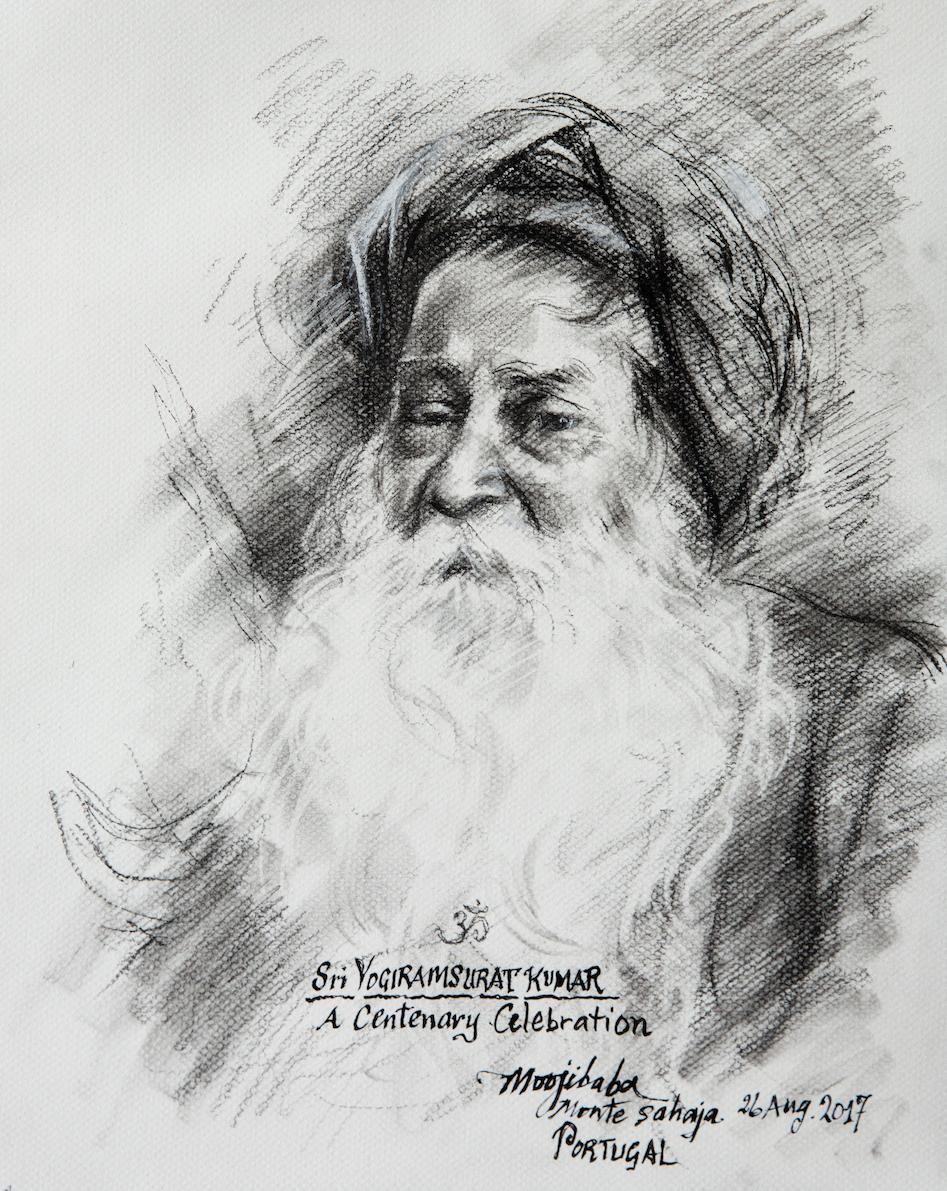 ॐ
Sri YOGIRAMSURAT KUMAR
A Centenary Celebration
Moojibaba
Monte Sahaja. 26 Aug. 2017
PORTUGAL